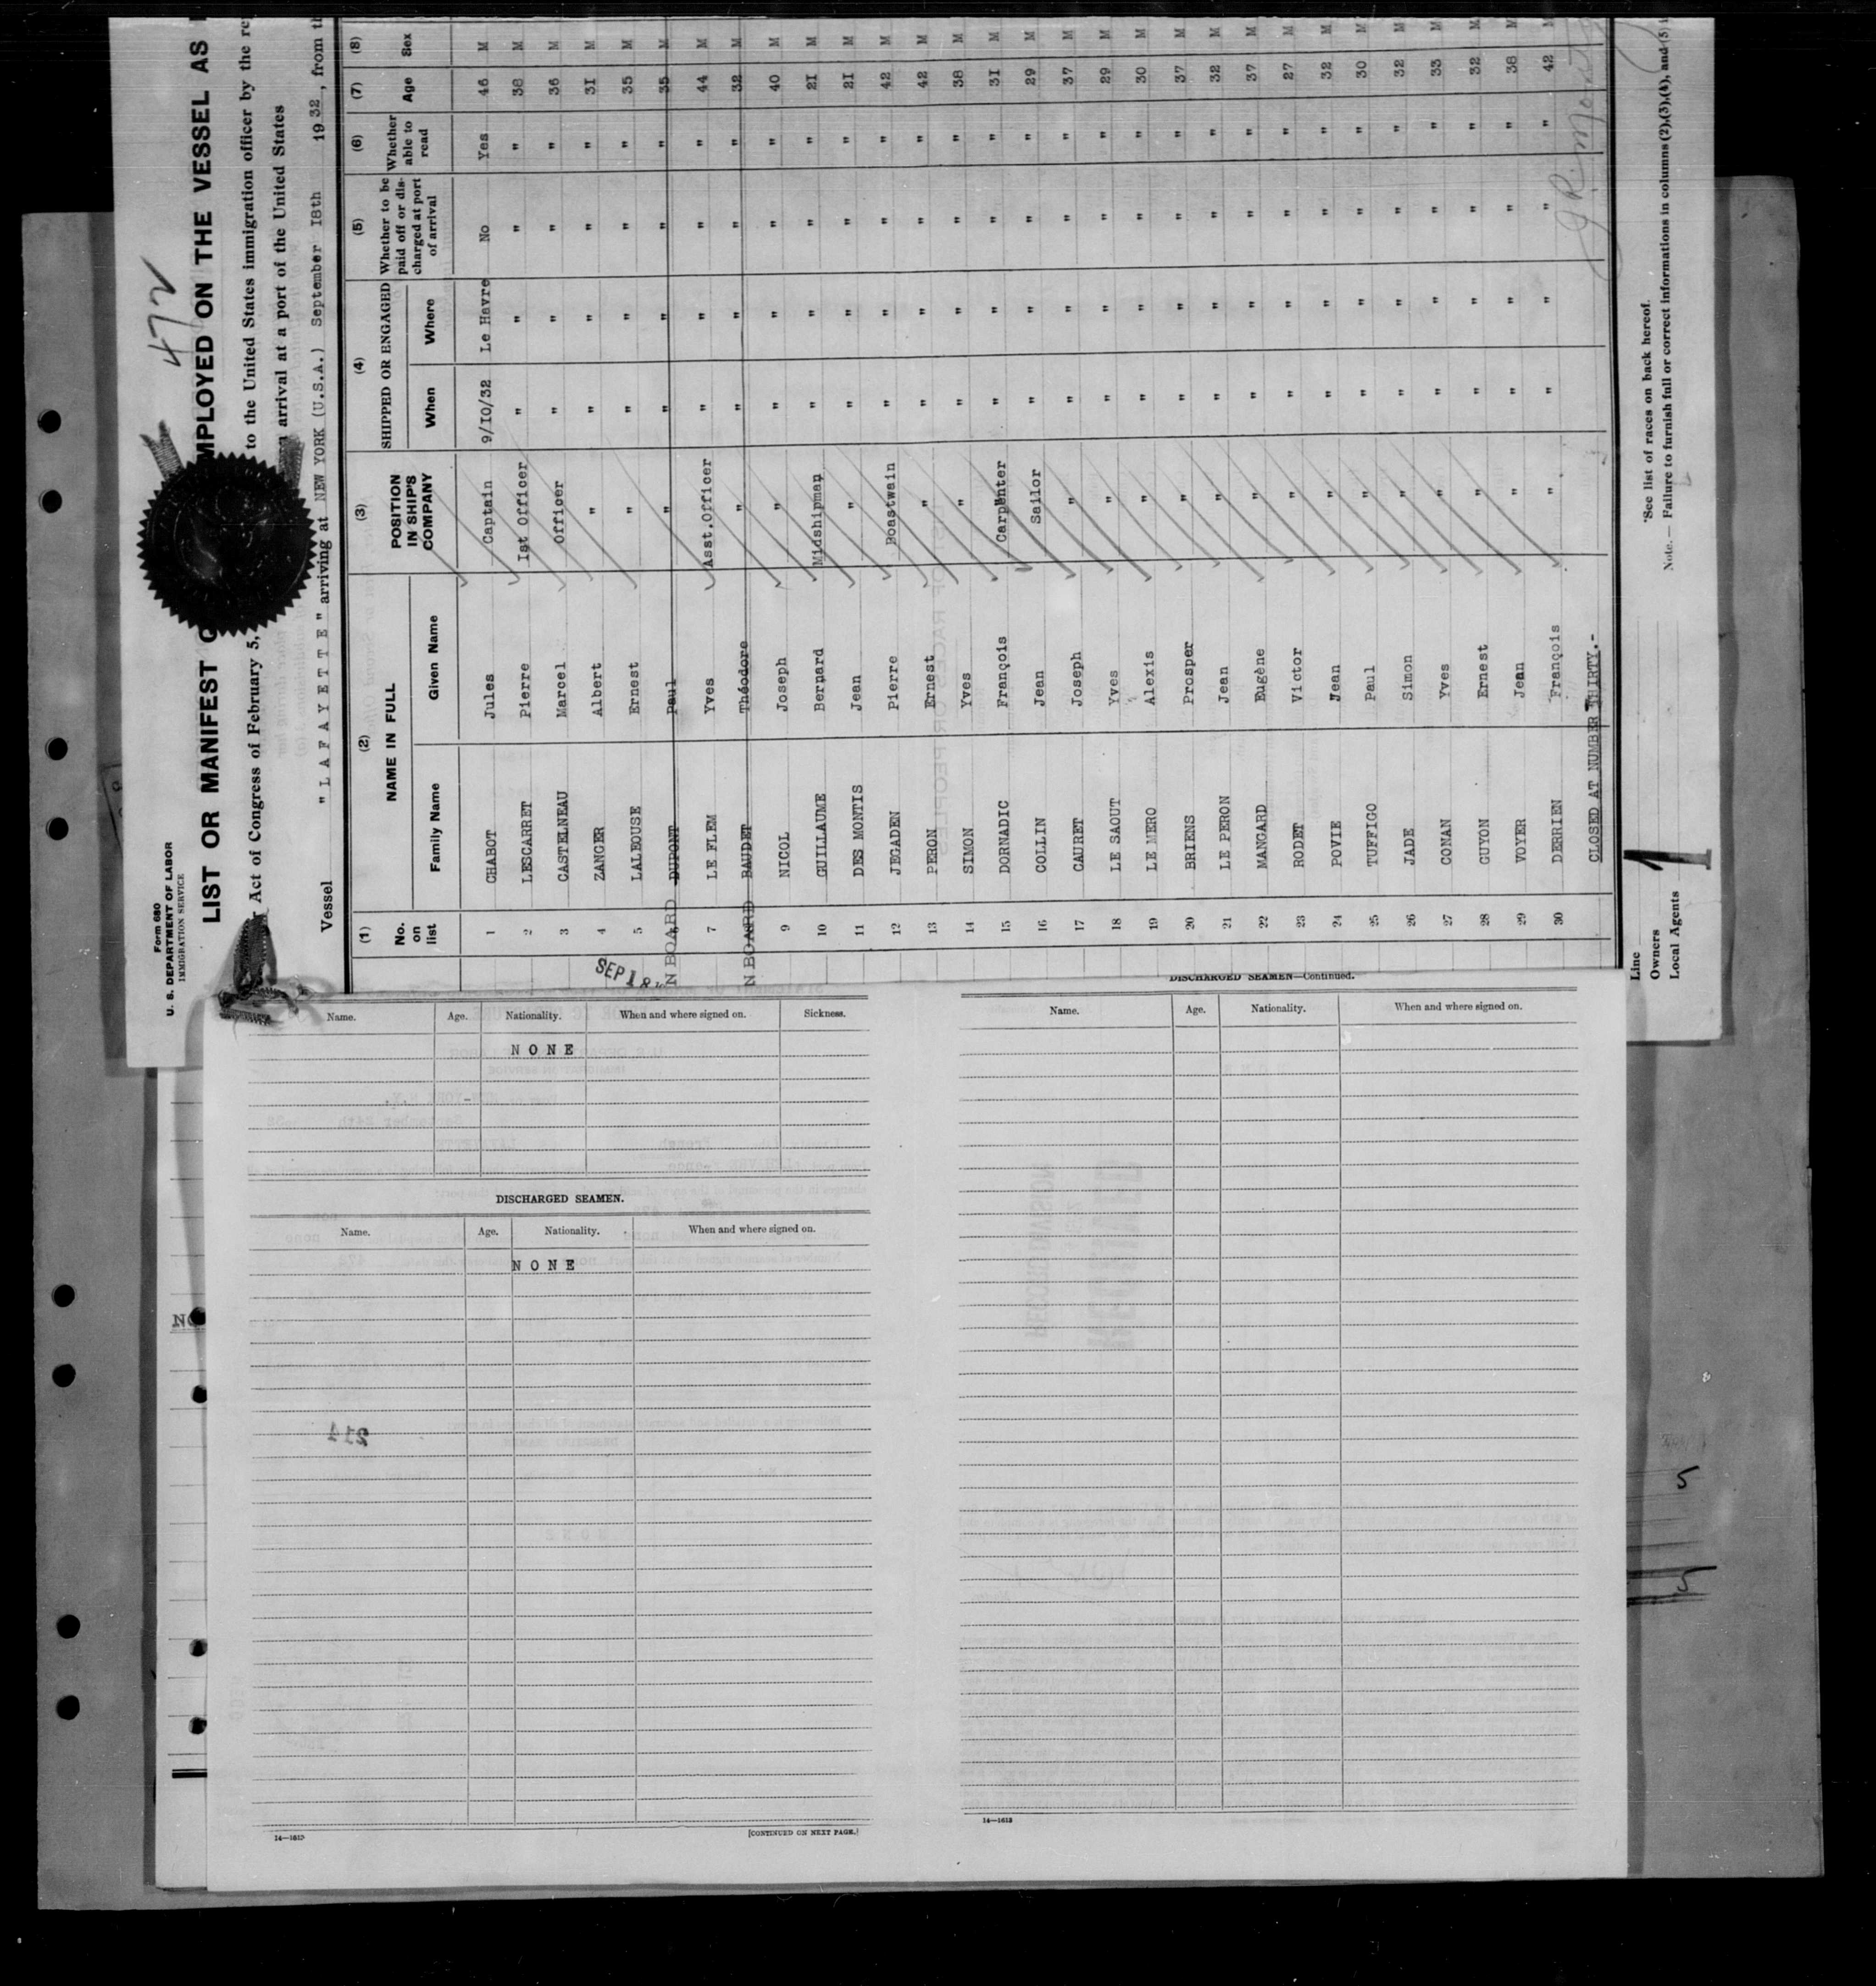 472
Form 680
U. S. DEPARTMENT OF LABOR
IMMIGRATION SERVICE
LIST OR MANIFEST MPLOYED ON THE VESSEL AS
Act of Congress of February 5, to the United States immigration officer by the
arrival at a port of the United States
Vessel "LAFAYETTE" arriving at NEW YORK (U.S.A.) September 18th 1932, from
(1) (2) (3) (4) (5) (6) (7) (8)
No. on list NAME IN FULL POSITION IN SHIP'S COMPANY SHIPPED OR ENGAGED Whether to be paid off or discharged at port of arrival Whether able to read Age Sex
Family Name Given Name When Where
1 CHABOT Jules Captain 9/10/32 Le Havre No Yes 46 M
2 LESCARRET Pierre Ist Officer " " " " 38 M
3 CASTELNEAU Marcel Officer " " " " 36 M
4 ZANGER Albert " " " " " 31 M
5 LALEOUSE Ernest " " " " " 35 M
N BOARD DUPONT Paul " " " " " 35 M
7 LE FLEM Yves Asst.Officer " " " " 44 M
N BOARD BAUDET Théodore " " " " " 32 M
9 NICOL Joseph " " " " " 40 M
10 GUILLAUME Bernard Midshipman " " " " 21 M
11 DES MONTIS Jean " " " " " 21 M
12 JEGADEN Pierre Boastwain " " " " 42 M
13 PERON Ernest " " " " " 42 M
14 SIMON Yves " " " " " 38 M
15 DORNADIC François Carpenter " " " " 31 M
16 COLLIN Jean Sailor " " " " 29 M
17 CAURET Joseph " " " " " 37 M
18 LE SAOUT Yves " " " " " 29 M
19 LE MERO Alexis " " " " " 30 M
20 BRIENS Prosper " " " " " 37 M
21 LE PERON Jean " " " " " 32 M
22 MANGARD Eugène " " " " " 37 M
23 RODET Victor " " " " " 27 M
24 POVIE Jean " " " " " 32 M
25 TUFFIGO Paul " " " " " 30 M
26 JADE Simon " " " " " 32 M
27 CONAN Yves " " " " " 33 M
28 GUYON Ernest " " " " " 32 M
29 VOYER Jean " " " " " 38 M
30 DERRIEN François " " " " " 42 M
CLOSED AT NUMBER THIRTY.-
SEP 18
Line
Owners
Local Agents
1
*See list of races on back hereof.
Note.— Failure to furnish full or correct informations in columns (2),(3),(4), and (5)
Name. Age. Nationality. When and where signed on. Sickness.
NONE
DISCHARGED SEAMEN.
Name. Age. Nationality. When and where signed on.
NONE
214
14—1613
[CONTINUED ON NEXT PAGE.]
DISCHARGED SEAMEN—Continued.
Name. Age. Nationality. When and where signed on.
14—1613
5
5